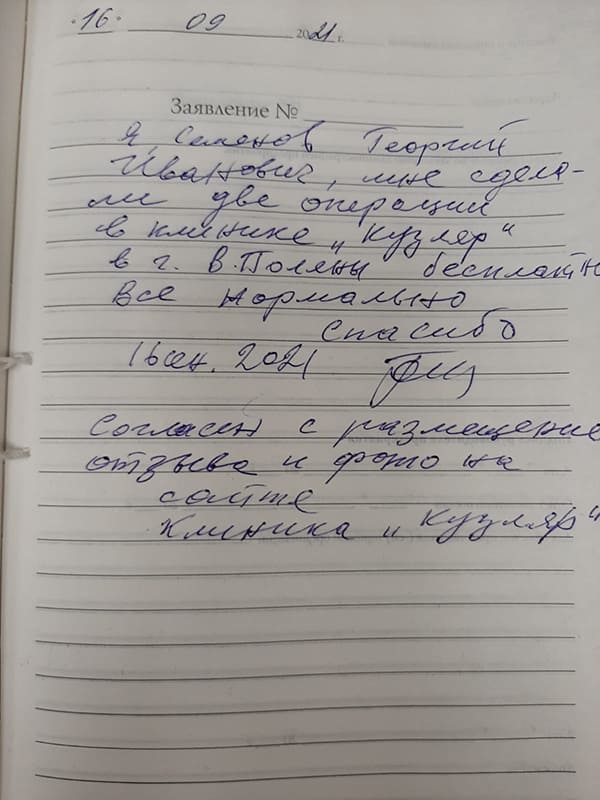 "16" 09 2021 г.
Заявление №
Я, Семенов Георгий
Иванович, мне сдела-
ли две операции
в клинике „Кузляр"
в г. В.Поляны бесплатн
Все нормально
Спасибо
16 сен. 2021
Согласен с размещение
отзыва и фото на
сайте
Клиника „Кузляр"